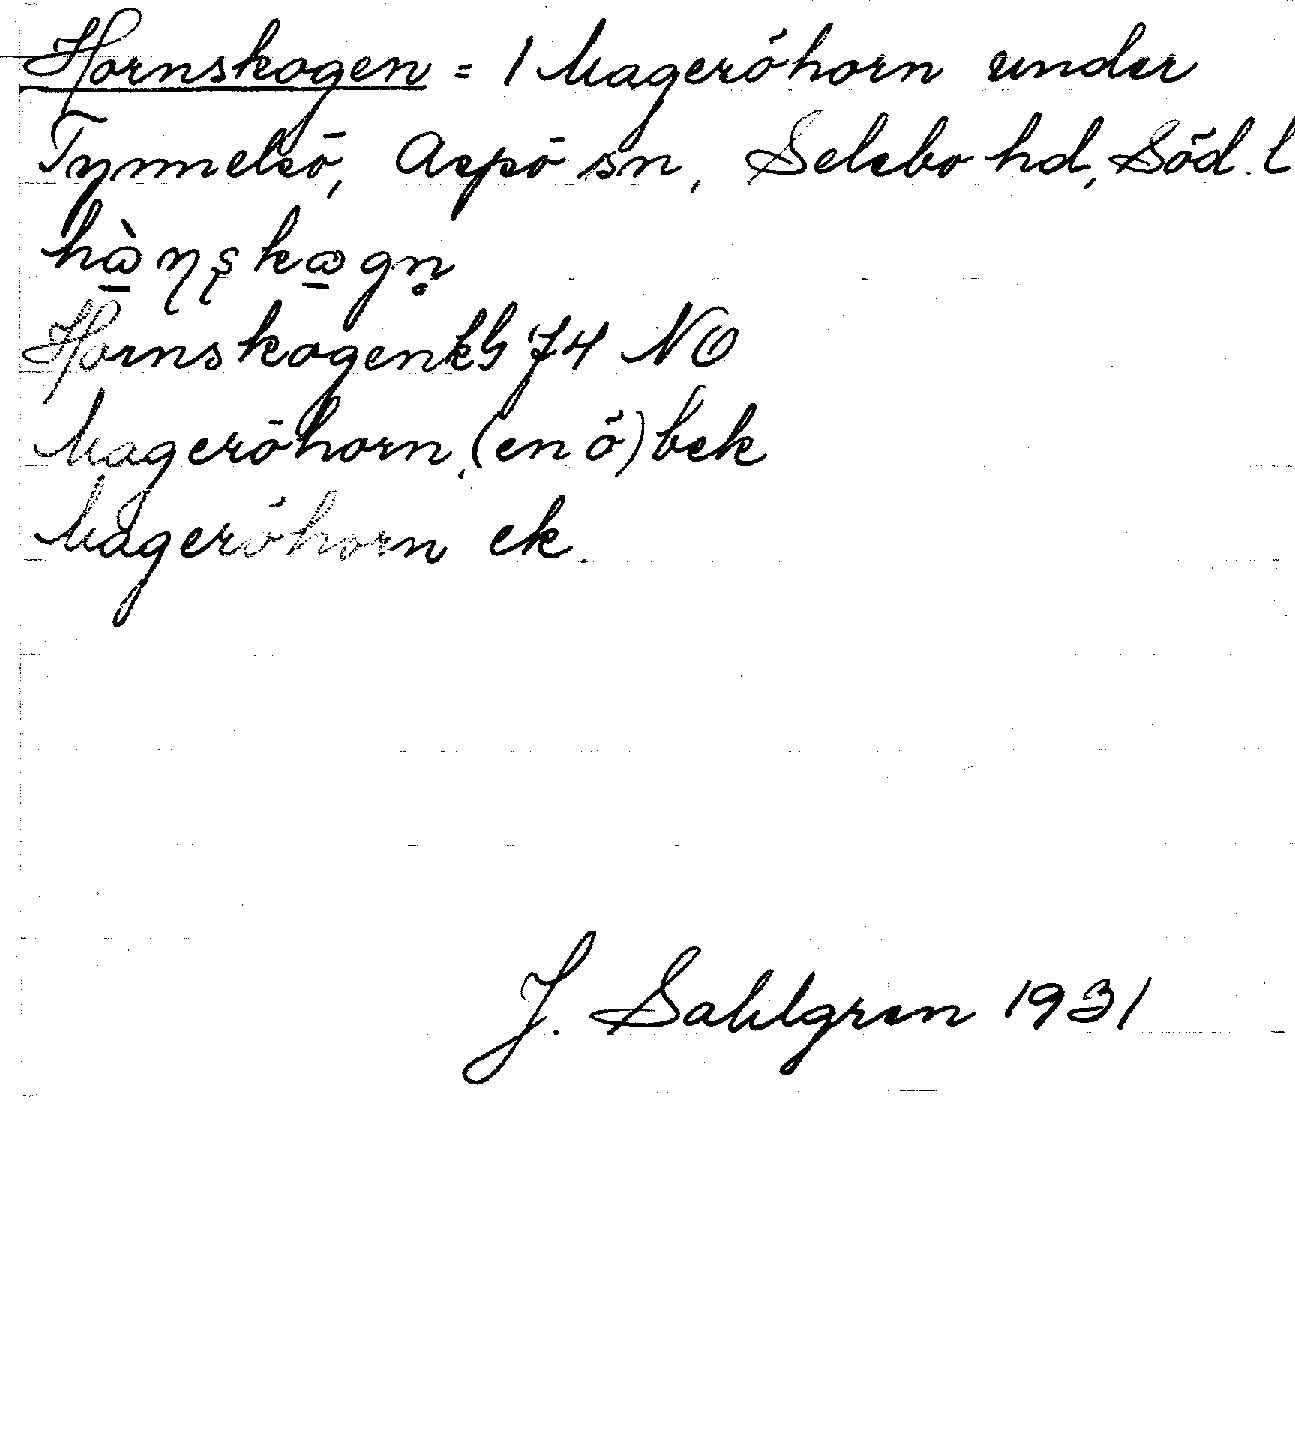 Hornskogen = 1 Mageröhorn under
Tynnelsö, Aspö sn, Selebo hd, Söd. l
hὼ̱ɳʂkω̱gn̥
Hornskogen 74 NO
Mageröhorn, (en ö) bek
Mageröhorn ek.
J. Sahlgren 1931